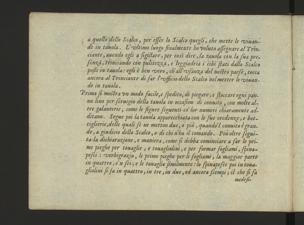 a quello dello Scalco, per esser lo Scalco quegli, che mette le vivan-
de in tavola. L'ultimo luogo finalmente hò voluto assignare al Trin-
ciante, avendo egli a seguitare, per così dire, la tavola con la sua pre-
senza, trinciando con pulitezza, e leggiadria i cibi stati dallo Scalco
posti in tavola: egli è ben vero, ch'all'usanza del nostro paese, tocca
ancora al Trinciante di far l'ufficio dello Scalco nel mettere le vivan-
de in tavola.
Prima si mostra un modo facile, e spedico, di piegare, e
ben lino per servigio della tavola in occasion di convito, con molte al-
tre galanterie, come le figure seguenti co' lor numeri chiaramente ad-
ditano. Segue poi la tavola apparecchiata con le sue credenze, e bot-
tiglierie, delle quali se ne metton due, e più, quando'l convito è gran-
de, a giudicio dello Scalco, e di chi n'hà il comando. Più oltre segui-
ta la dichiarazione, e maniera, come si debba cominciare a far le pri-
me pieghe per tovaglie, e tovagliolini, e per formar fogliami, spina-
pesci: verbigrazia, le prime pieghe per li fogliami, la maggior parte
in quattro, è'n sei; e le tovaglie similmente: lo spinapesce poi in tova-
gliolini si fa in quattro, in tre, in due, ed ancora scempi, il che si fa
medesi-